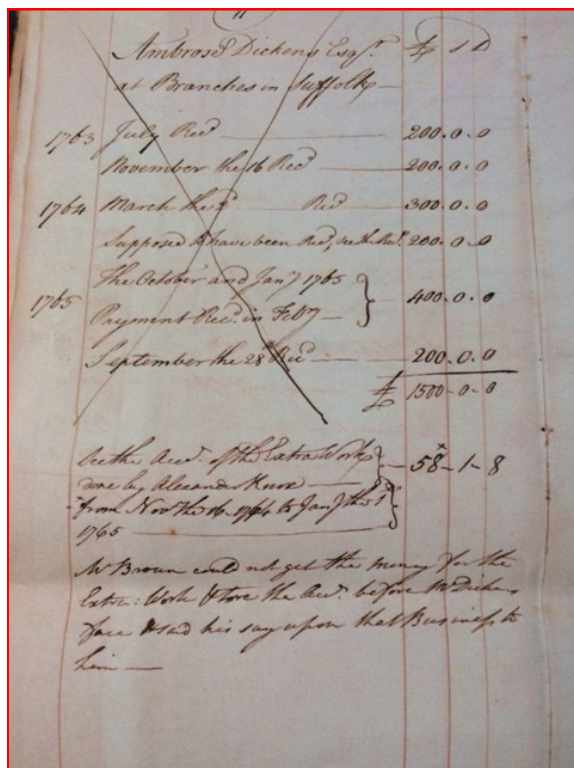 11
Ambrose Dickens Esqr. £ S D
at Branches in Suffolk —
1763 July Recd — 200.0.0
November the 16 Recd — 200.0.0
1764 March the 3d Recd — 300.0.0
Supposed to have been Recd, see the 200.0.0
The October and Jany 1765
1765 Payment Recd. in Febry — } 400.0.0
September the 28 Recd — 200.0.0
£ 1500-0-0
See the Acct. of the Extra Work
done by Alexander Knox — } — 58-1-8
from Novr the 16-1764 to Jany the 1st
1765 —
Mr Brown could not get the money for the
Extra: Work & tore the Acct. before Mr Dickens
face & said his say upon that Business to
him —